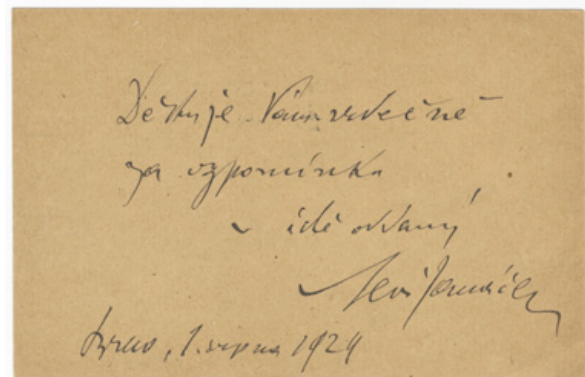 Děkuje Vám srdečně
za vzpomínku
oddaný
Leoš Janáček
Brno, 1. srpna 1924